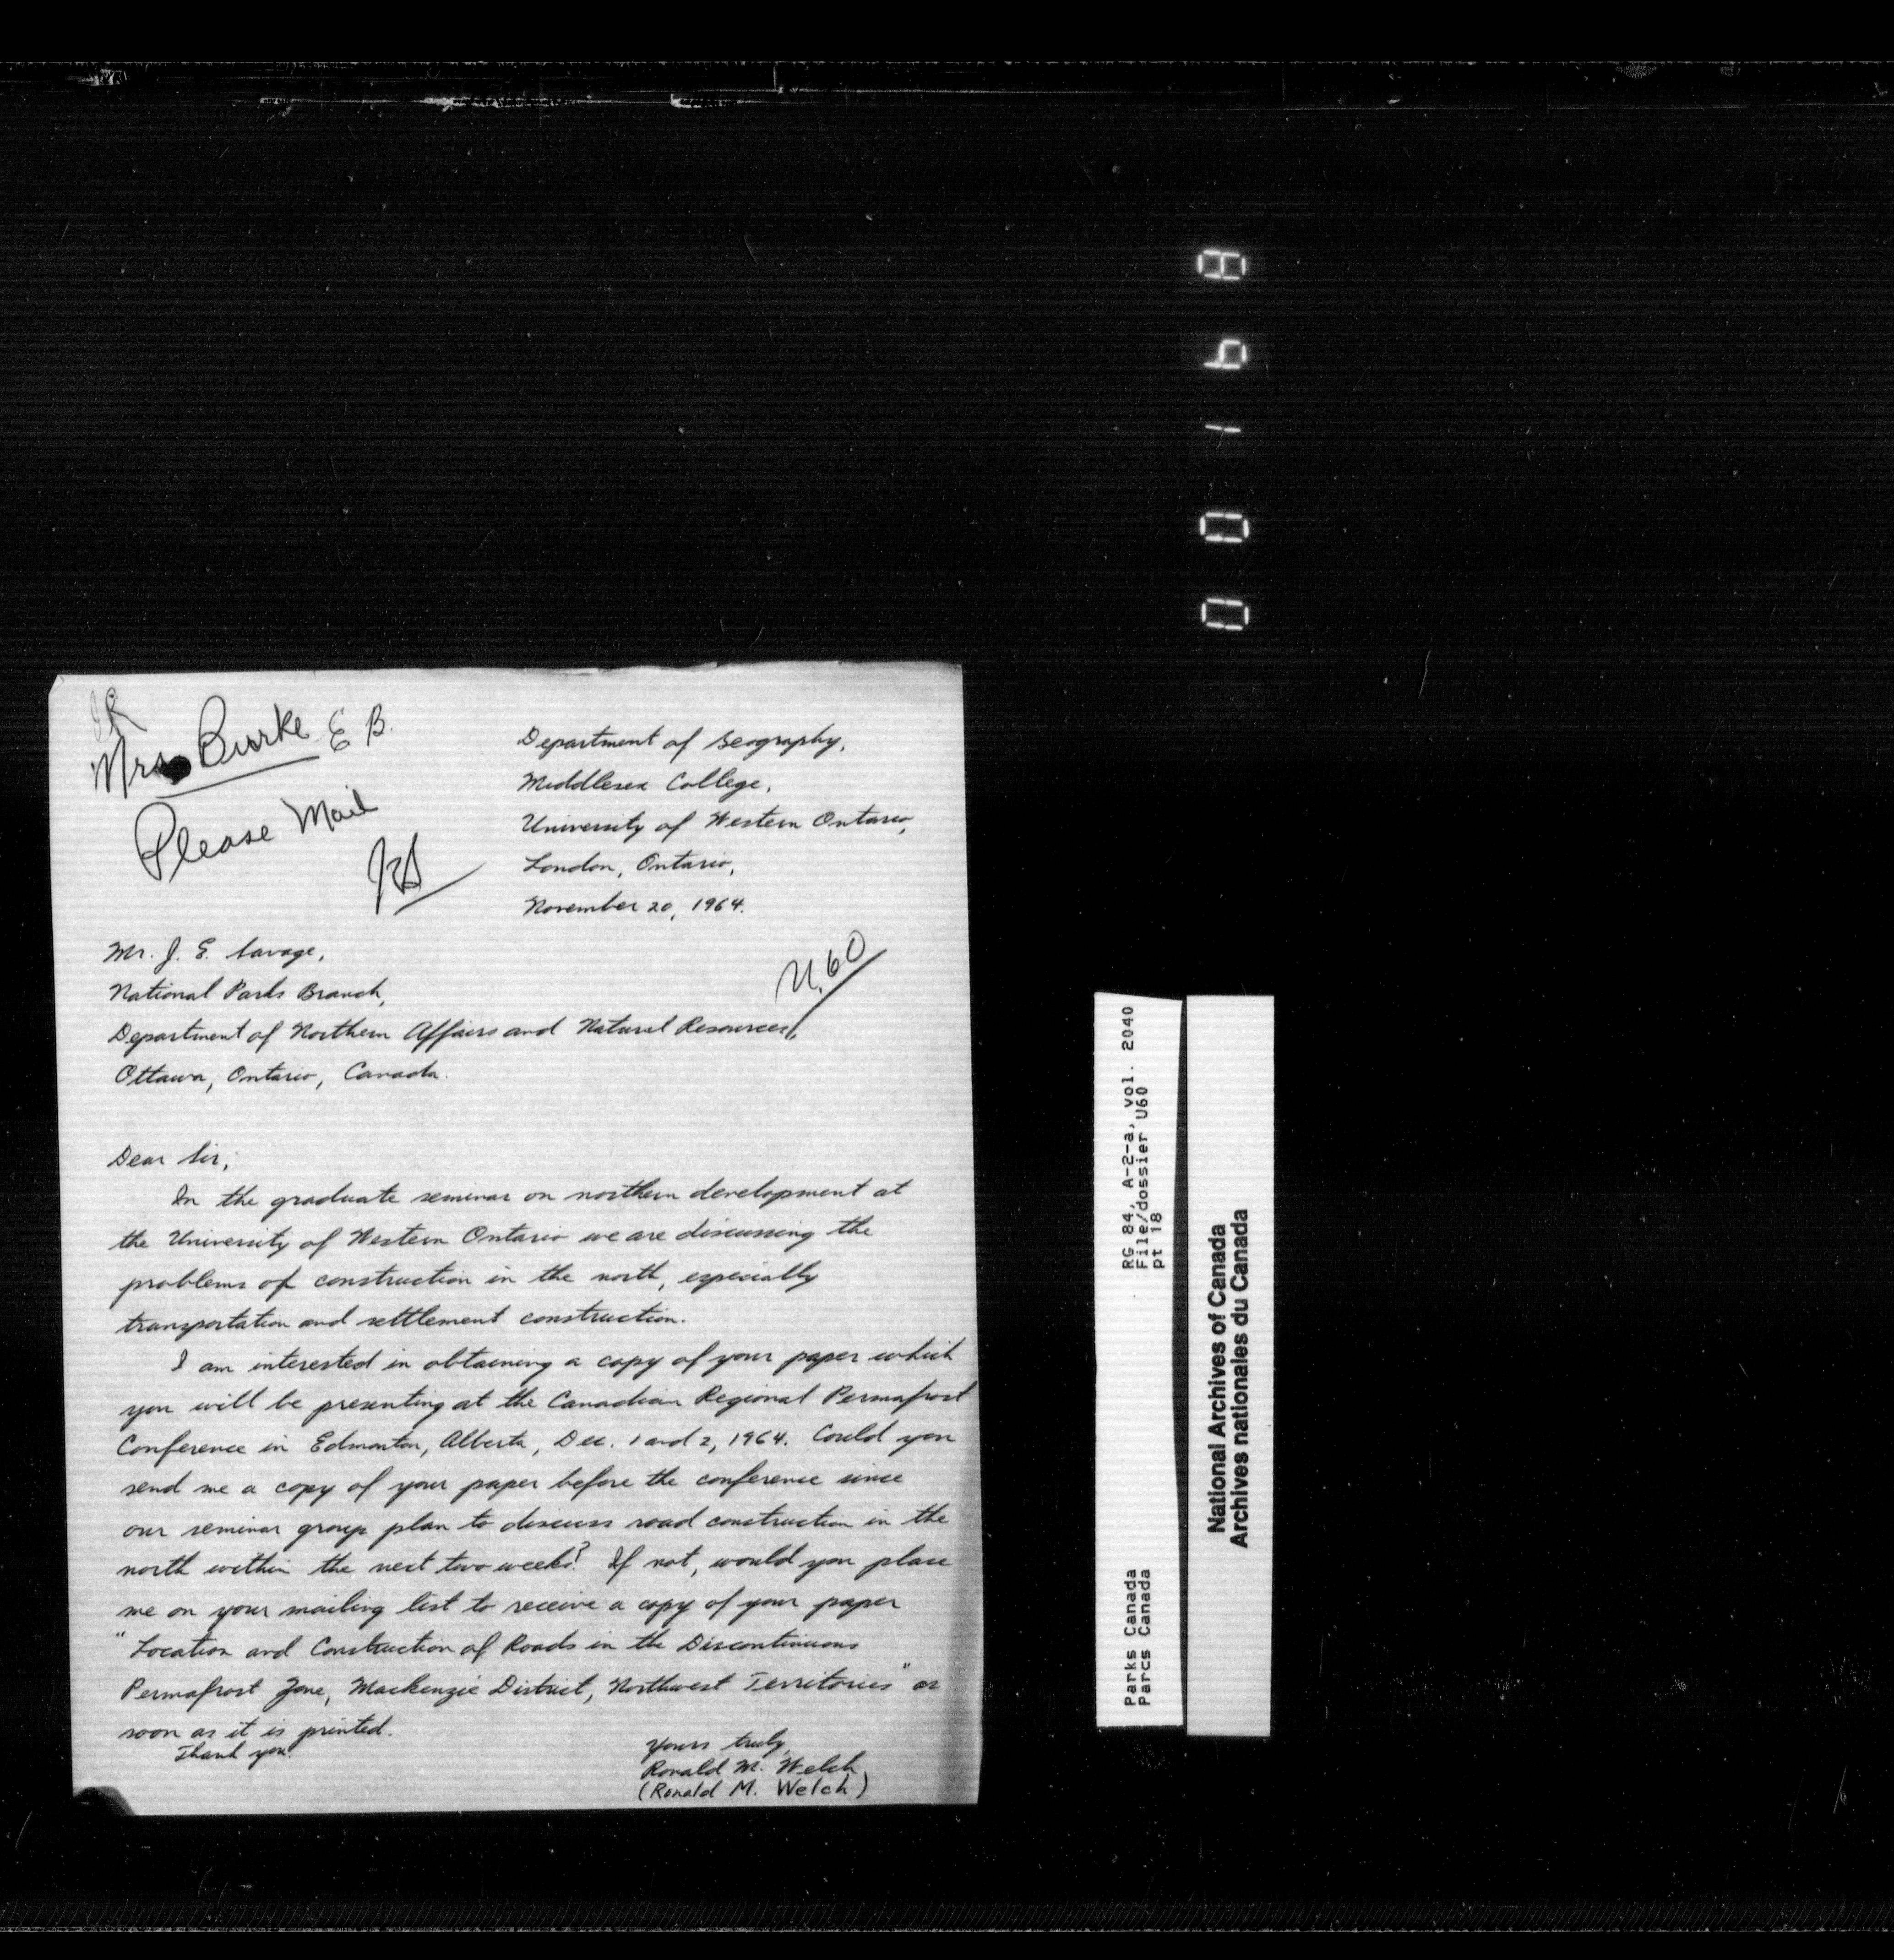 Mrs Burke E B.
Please Mail
Department of Geography,
Middlesex College,
University of Western Ontario,
London, Ontario,
November 20, 1964.
U.60
Mr. J. E. Savage,
National Parks Branch,
Department of Northern Affairs and Natural Resources,
Ottawa, Ontario, Canada.
Dear Sir;
In the graduate seminar on northern development at
the University of Western Ontario we are discussing the
problems of construction in the north, especially
transportation and settlement construction.
I am interested in obtaining a copy of your paper which
you will be presenting at the Canadian Regional Permafrost
Conference in Edmonton, Alberta, Dec. 1 and 2, 1964. Could you
send me a copy of your paper before the conference since
our seminar group plan to discuss road construction in the
north within the next two weeks? If not, would you place
me on your mailing list to receive a copy of your paper
"Location and Construction of Roads in the Discontinuous
Permafrost Zone, Mackenzie District, Northwest Territories" as
soon as it is printed.
Thank you.
Yours truly,
Ronald M. Welch
(Ronald M. Welch)
00168
RG 84, A-2-a, vol. 2040
File/dossier U60
pt 18
Parks Canada
Parcs Canada
National Archives of Canada
Archives nationales du Canada